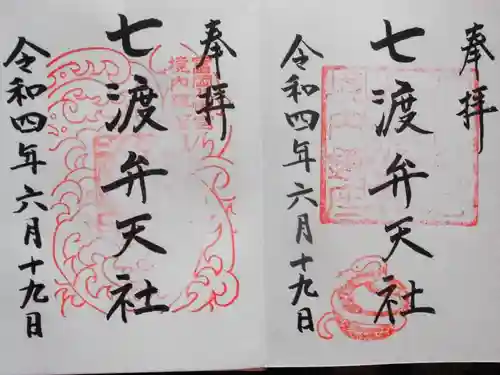 奉拝
七渡弁天社
令和四年六月十九日
奉拝
七渡弁天社
令和四年六月十九日